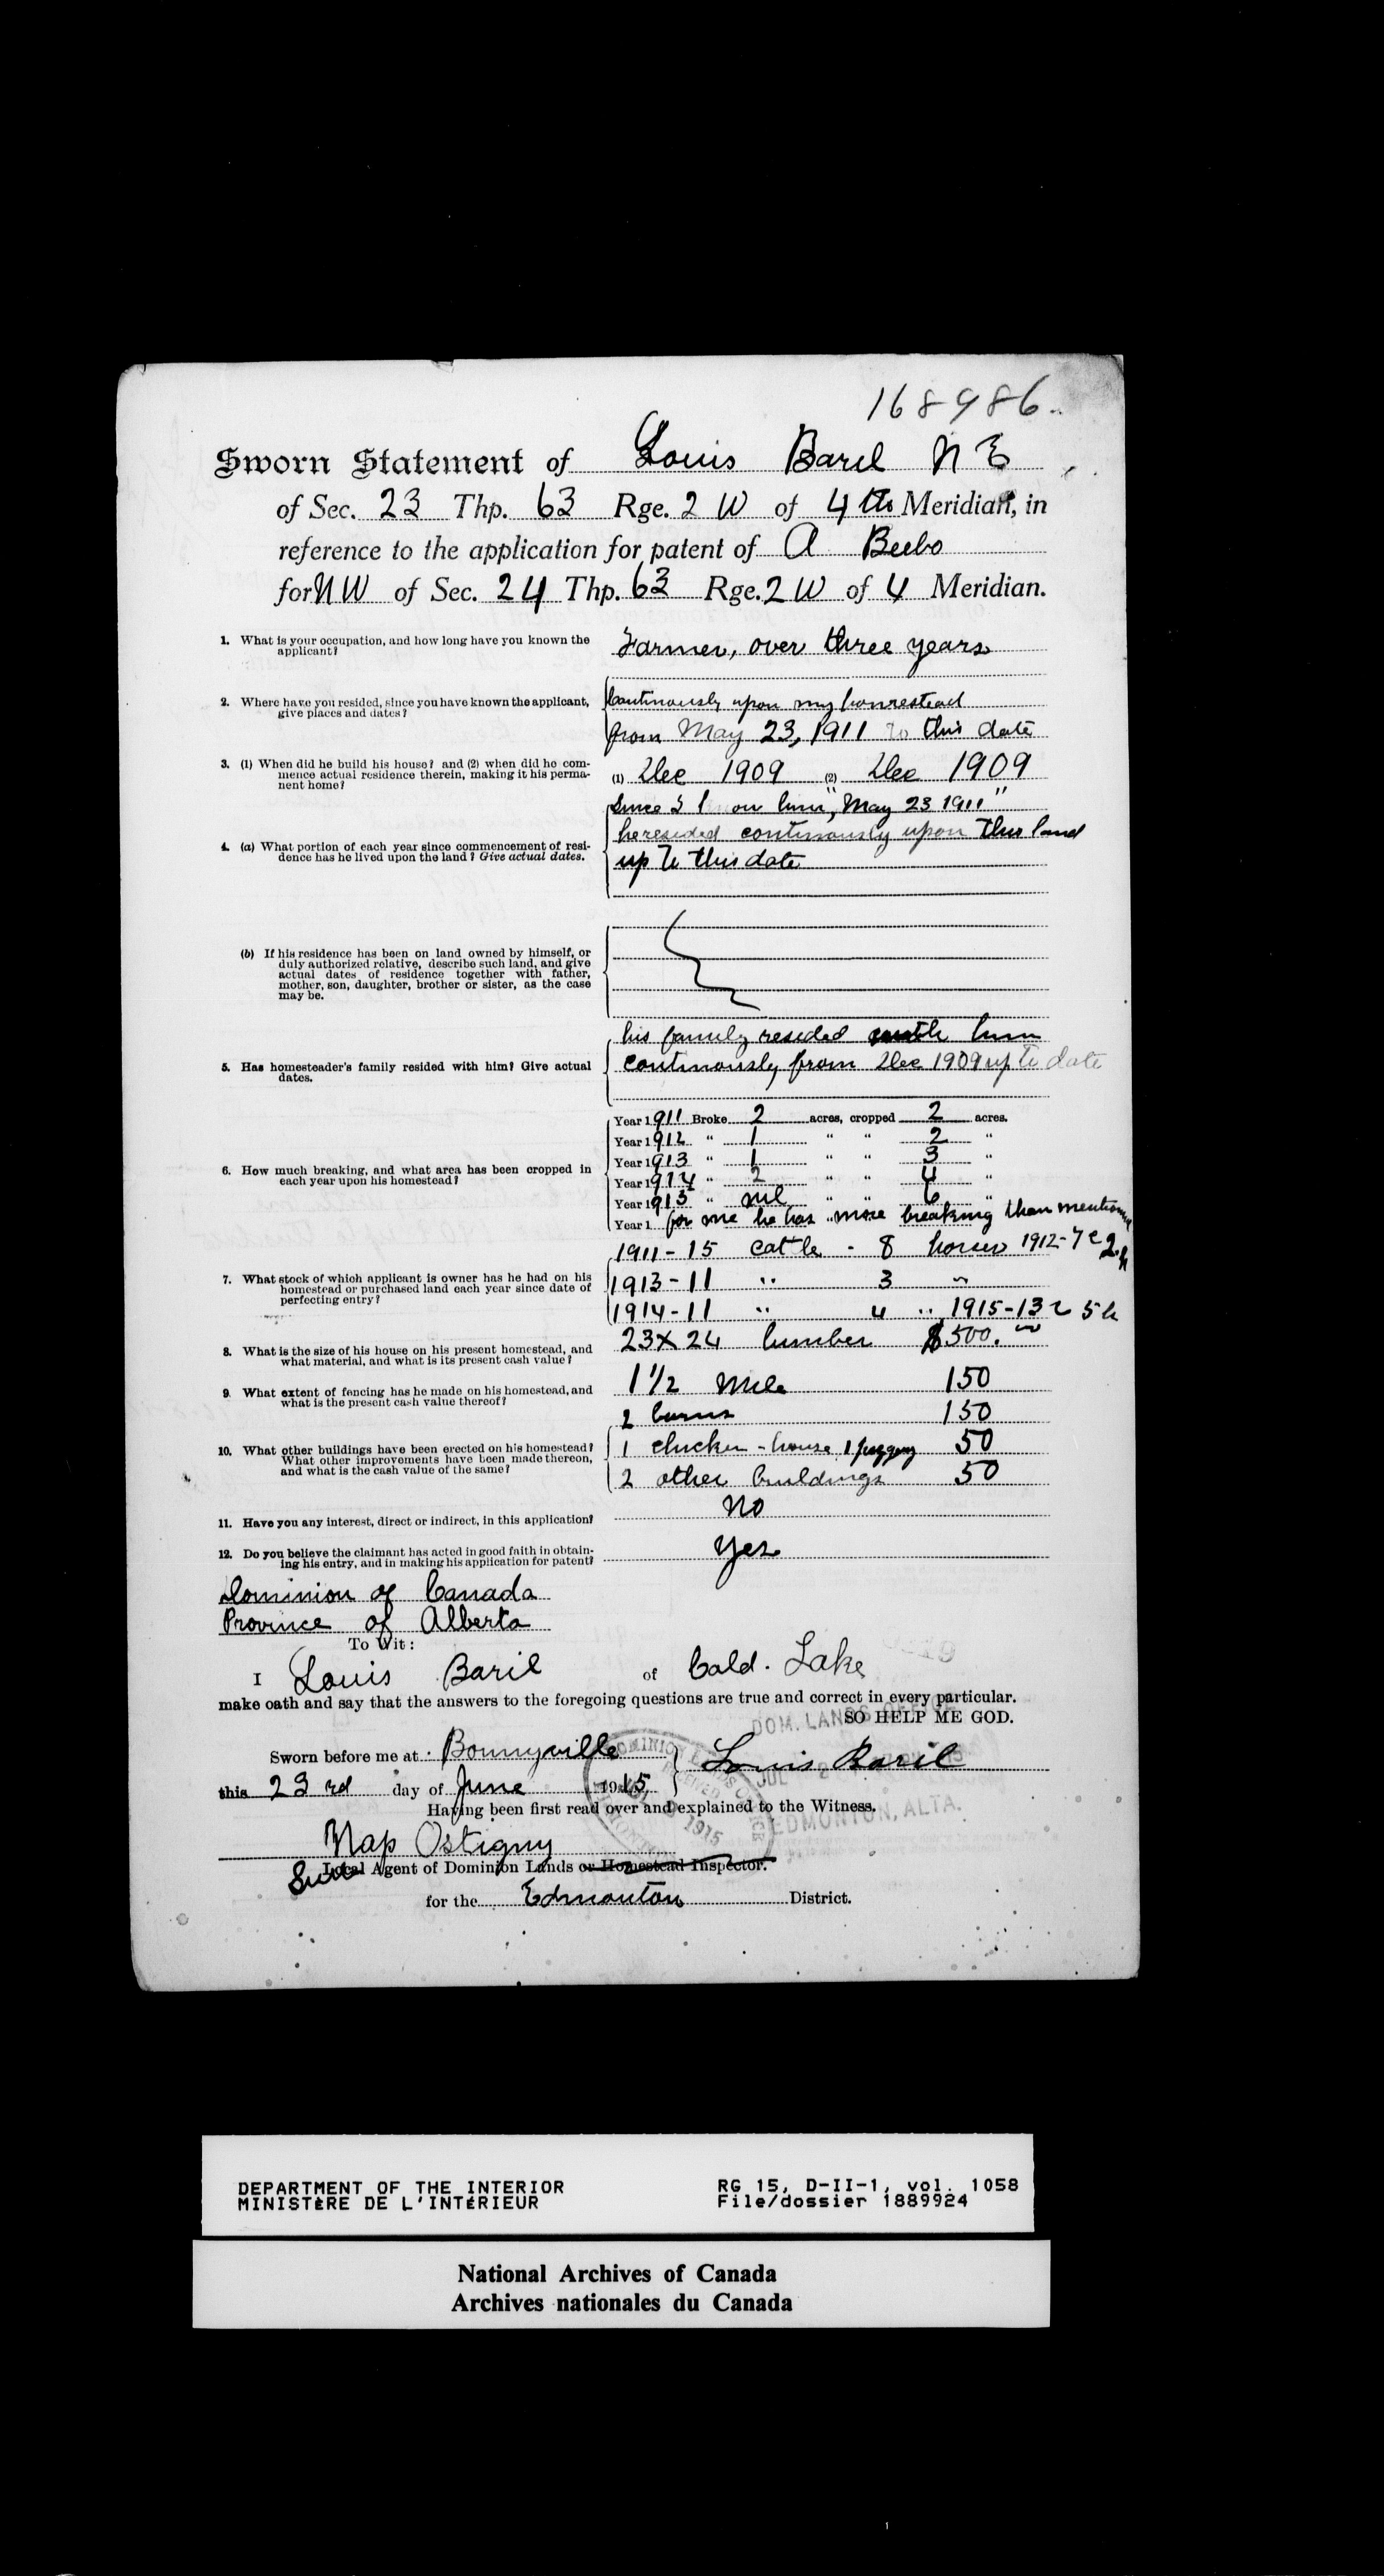 168986.
Sworn Statement of Louis Baril N E
of Sec. 23 Thp. 63 Rge. 2 W of 4th Meridian, in
reference to the application for patent of A Beebo
for NW of Sec. 24 Thp. 63 Rge. 2 W of 4 Meridian.
1. What is your occupation, and how long have you known the
applicant?
Farmer, over three years
2. Where have you resided, since you have known the applicant,
give places and dates?
Continously upon my homestead
from May 23, 1911 to this date
3. (1) When did he build his house? and (2) when did he com-
mence actual residence therein, making it his perma-
nent home?
(1) Dec 1909 (2) Dec 1909
4. (a) What portion of each year since commencement of resi-
dence has he lived upon the land? Give actual dates.
Since I know him, "May 23 1911"
he resided continously upon this land
up to this date
(b) If his residence has been on land owned by himself, or
duly authorized relative, describe such land, and give
actual dates of residence together with father,
mother, son, daughter, brother or sister, as the case
may be.
5. Has homesteader's family resided with him? Give actual
dates.
his family resided with him
continously from Dec 1909 up to date
6. How much breaking, and what area has been cropped in
each year upon his homestead?
Year 1911 Broke 2 acres, cropped 2 acres.
Year 1912 " 1 " " 2 "
Year 1913 " 1 " " 3 "
Year 1914 " 2 " " 4 "
Year 1915 " nil " " 6 "
Year 1 for me he has more breaking than mentioned
7. What stock of which applicant is owner has he had on his
homestead or purchased land each year since date of
perfecting entry?
1911-15 cattle - 8 horses 1912-7c 2h
1913-11 " 3 "
1914-11 " 4 " 1915-13c 5h
8. What is the size of his house on his present homestead, and
what material, and what is its present cash value?
23x24 lumber $500.
9. What extent of fencing has he made on his homestead, and
what is the present cash value thereof?
1 1/2 mile 150
10. What other buildings have been erected on his homestead?
What other improvements have been made thereon,
and what is the cash value of the same?
2 barns 150
1 chicken-house 1 50
2 other buildings 50
11. Have you any interest, direct or indirect, in this application?
no
12. Do you believe the claimant has acted in good faith in obtain-
ing his entry, and in making his application for patent?
yes
Dominion of Canada
Province of Alberta
To Wit:
I Louis Baril of Cold. Lake
make oath and say that the answers to the foregoing questions are true and correct in every particular.
SO HELP ME GOD.
DOM. LANDS OFFICE
Sworn before me at Bonnyville
Louis Baril
this 23rd day of June 1915
Having been first read over and explained to the Witness.
EDMONTON, ALTA.
Nap Ostigny
Local Agent of Dominion Lands or Homestead Inspector.
for the Edmonton District.
DEPARTMENT OF THE INTERIOR
MINISTÈRE DE L'INTÉRIEUR
RG 15, D-II-1, vol. 1058
File/dossier 1889924
National Archives of Canada
Archives nationales du Canada